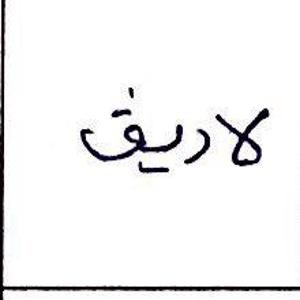 لاريق